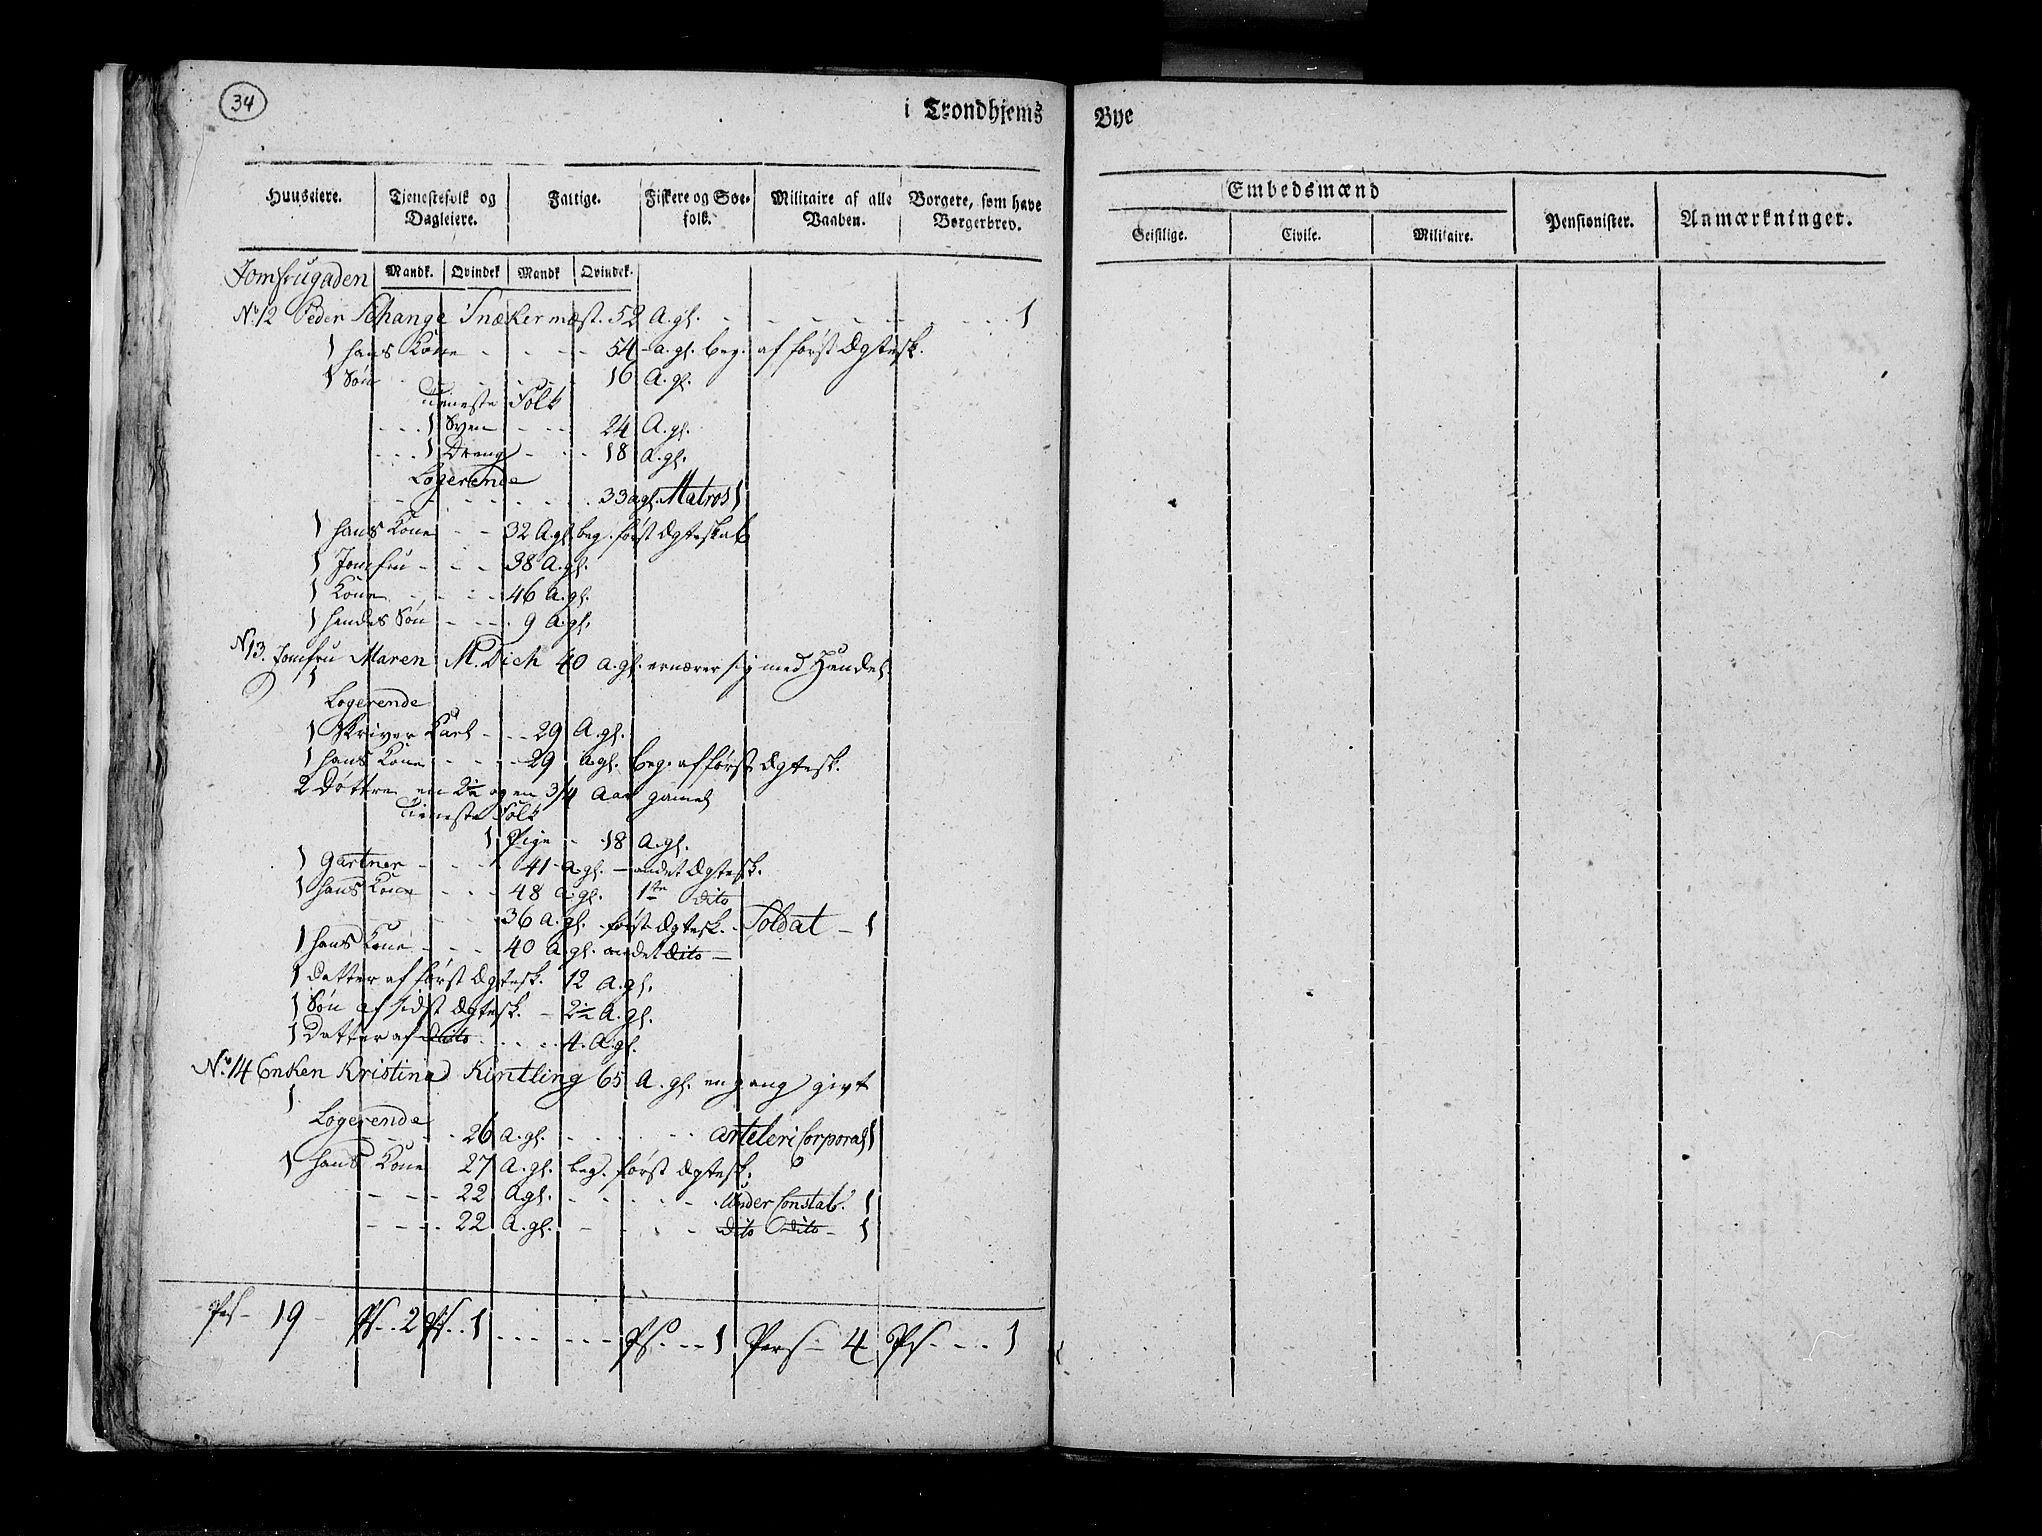 34
i Trondhjems Bye
Huuseiere. Tjenestefolk og Dagleiere. Fattige. Fiskere og Søefolk. Militaire af alle Vaaben. Borgere, som have Borgerbrev. Embedsmænd Pensionister. Anmærkninger.
Geistlige. Civile. Militaire.
Mandk. Qvindek Mandk Qvindek.
Jomfrugaden
No 12 Peder Schange Snækermæst. 52 A. gl. 1
1 hans Kone 54 a. gl. beg. af først Ægtesk.
1 Søn 16 A. gl.
Tieneste Folk
1 Sven 24 A. gl.
1 Dreng 18 A. gl.
Logerende
33 a gl. Matros 1
1 hans Kone 32 A. gl beg. først Ægteskab
1 Jomfru 38 A. gl.
1 Kone 46 A. gl.
1 hendes Søn 9 A. gl.
N 13. Jomfru Maren M. Dich 40 a. gl. ernærer sig med Handel
1
Logerende
1 Skriver Karl 29 A. gl.
1 hans Kone 29 A. gl. beg. af først Ægtesk.
2 Døttre en 2½ og en 3/4 Aar gamel
Tieneste Folk
1 Pige 18 A. gl.
1 Gartner 41 A. gl. andet Ægtesk.
1 hans Kone 48 a. gl. 1te dito
36 A. gl. først Ægtesk. Soldat 1
1 hans Kone 40 A. gl. andet dito
1 Datter af først Ægtesk. 12 A. gl.
1 Søn af sidst Ægtesk. 2½ A. gl.
1 Datter af dito 4 A. gl.
No 14 Enken Kristina Kintling 65 A. gl. en gang givt
1
Logerende
26 A. gl. Arteleri Corporal 1
1 hans Kone 27 A. gl. beg. først Ægtesk.
22 A gl. Under Constab. 1
22 A. gl. dito dito 1
Pers 19 Ps 2 Ps 1 Ps. 1 Pers 4 Ps 1